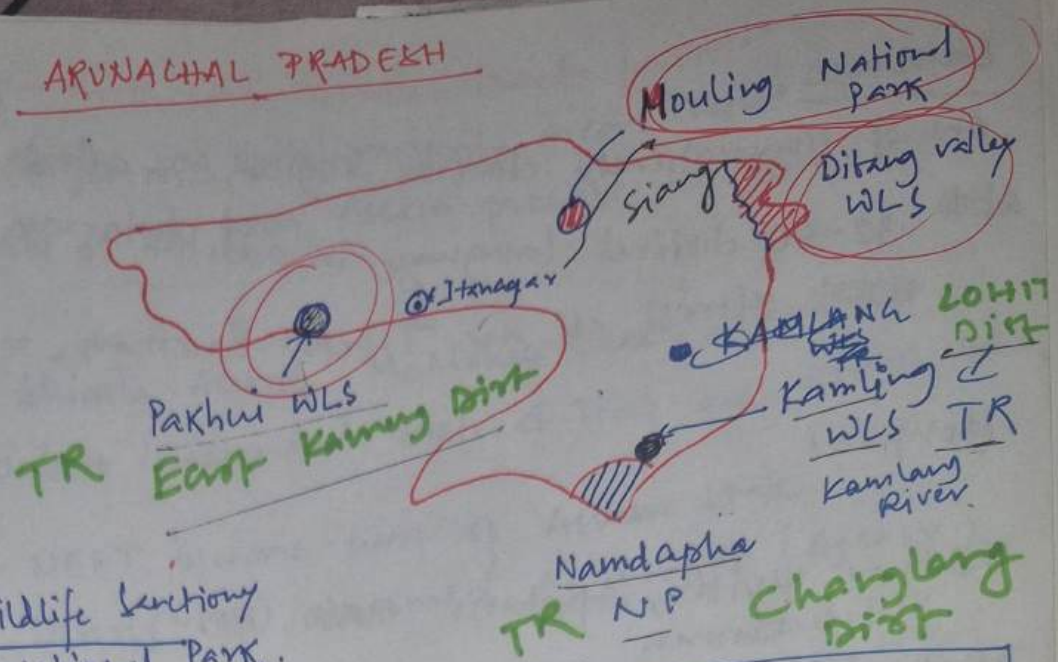 ARUNACHAL PRADESH
Mouling National
Park
Dibang valley
WLS
Siang
Itanagar
KAMLANG
WLS
TR
LOHIT
Dist
Kamlang
WLS TR
Kamlang
River
Pakhui WLS
TR East Kameng Dist
Namdapha
TR NP Changlang
Dist
ildlife Sanctiony
tional Park.